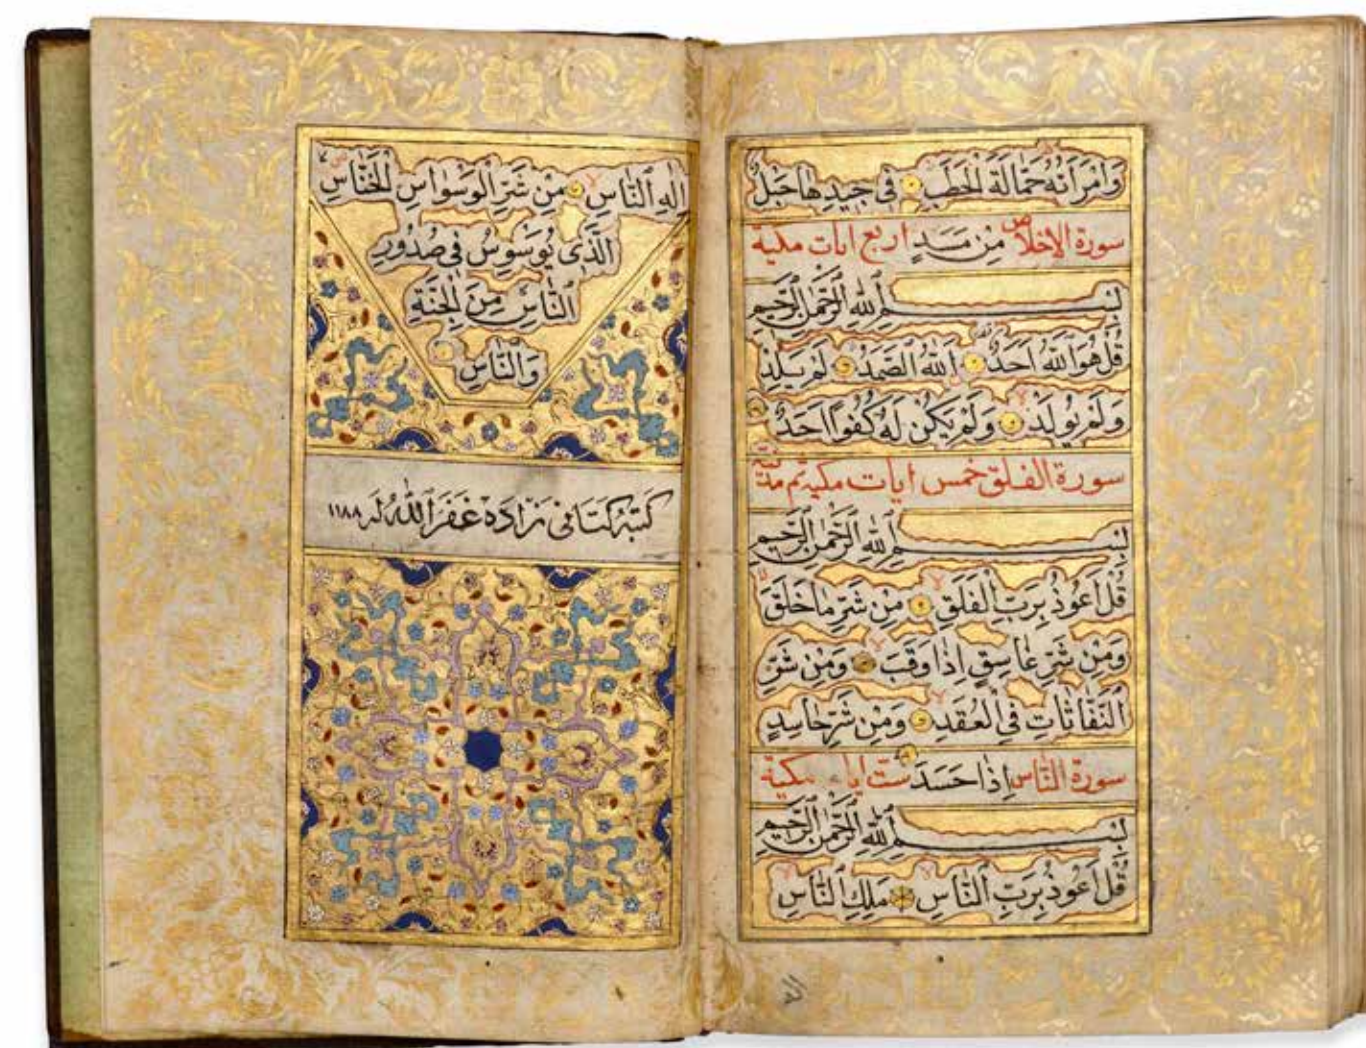 وَامْرَأَتُهُ حَمَّالَةَ الْحَطَبِ فِى جِيدِهَا حَبْلٌ
سورة الاخلاص مِنْ مَسَدٍ اربع ايات مكية
بِسْمِ اللّٰهِ الرَّحْمٰنِ الرَّحِيمِ
قُلْ هُوَ اللّٰهُ اَحَدٌ اَللّٰهُ الصَّمَدُ لَمْ يَلِدْ
وَلَمْ يُولَدْ وَلَمْ يَكُنْ لَهُ كُفُوًا اَحَدٌ
سورة الفلق خمس ايات مكية
بِسْمِ اللّٰهِ الرَّحْمٰنِ الرَّحِيمِ
قُلْ اَعُوذُ بِرَبِّ الْفَلَقِ مِنْ شَرِّ مَا خَلَقَ
وَمِنْ شَرِّ غَاسِقٍ اِذَا وَقَبَ وَمِنْ شَرِّ
النَّفَّاثَاتِ فِى الْعُقَدِ وَمِنْ شَرِّ حَاسِدٍ
سورة النّاس اِذَا حَسَدَ ست ايات مكية
بِسْمِ اللّٰهِ الرَّحْمٰنِ الرَّحِيمِ
قُلْ اَعُوذُ بِرَبِّ النَّاسِ مَلِكِ النَّاسِ
اِلٰهِ النَّاسِ مِنْ شَرِّ الْوَسْوَاسِ الْخَنَّاسِ
الَّذِى يُوَسْوِسُ فِى صُدُورِ
النَّاسِ مِنَ الْجِنَّةِ
وَالنَّاسِ
كَتَبَهُ كتانى زاده غَفَرَ اللّٰهُ لَهُ ١١٨٨